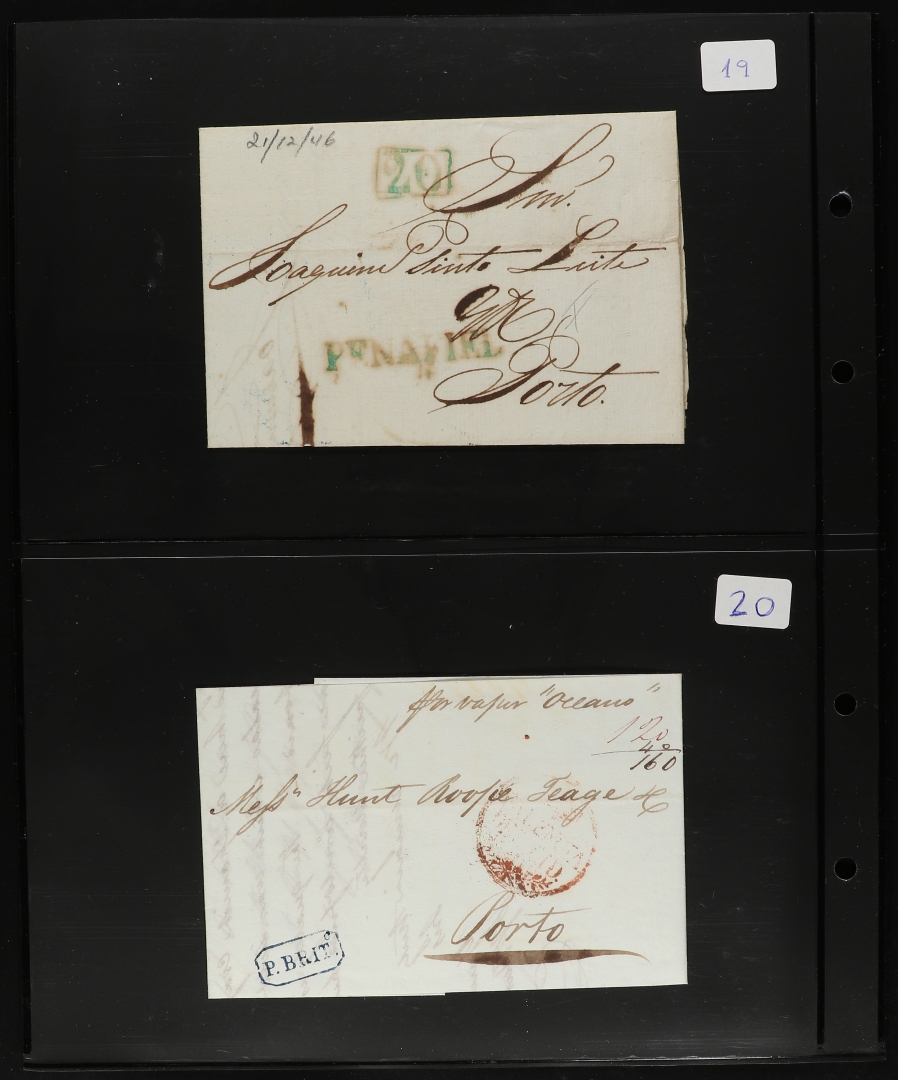 19
21/12/46
20
Snr.
Joaquim Pinto Leite
Porto.
PENAFIEL
20
por vapur "Oceano"
120
40
160
Messrs Hunt Roope Teage &c
Porto
P. BRITº.